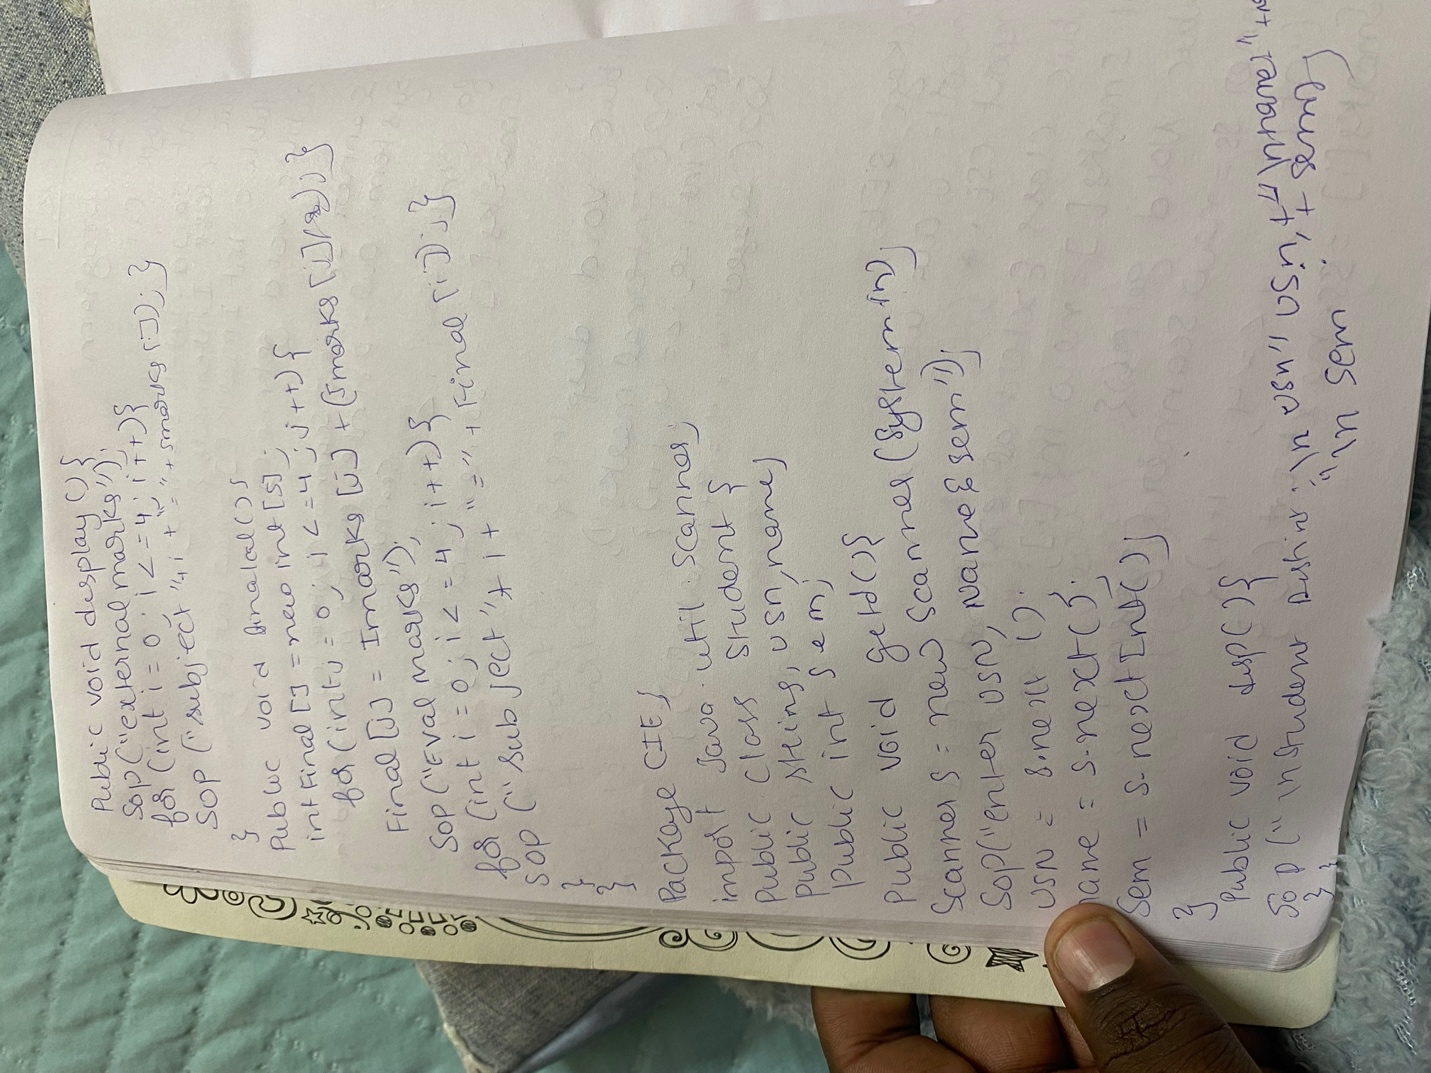 public void display () {
Sop("external marks");
for (int i = 0; i <= 4; i++){
SOP ("subject" + i + "=" + smarks[i]); }
}
public void finalcal() {
int Final [] = new int [5];
for (int j = 0; j <= 4; j++) {
Final [j] = Imarks [j] + (Smarks [j]/2); }
Sop ("Eval marks");
for (int i = 0; i <= 4; i++) {
SOP ("subject" + i + "=" + Final [i]); }
}
}
package CIE;
import java.util.Scanner;
public class Student {
public string usn, name;
public int sem;
public void getd() {
Scanner s = new Scanner (System.in);
Sop("enter USN, Name & sem");
USN = s.next ();
name = s.next();
Sem = s.nextInt();
}
public void disp() {
Sop ("\n Student \n usn" usn, + "\n name: " +
"\n sem + sem;)
} }